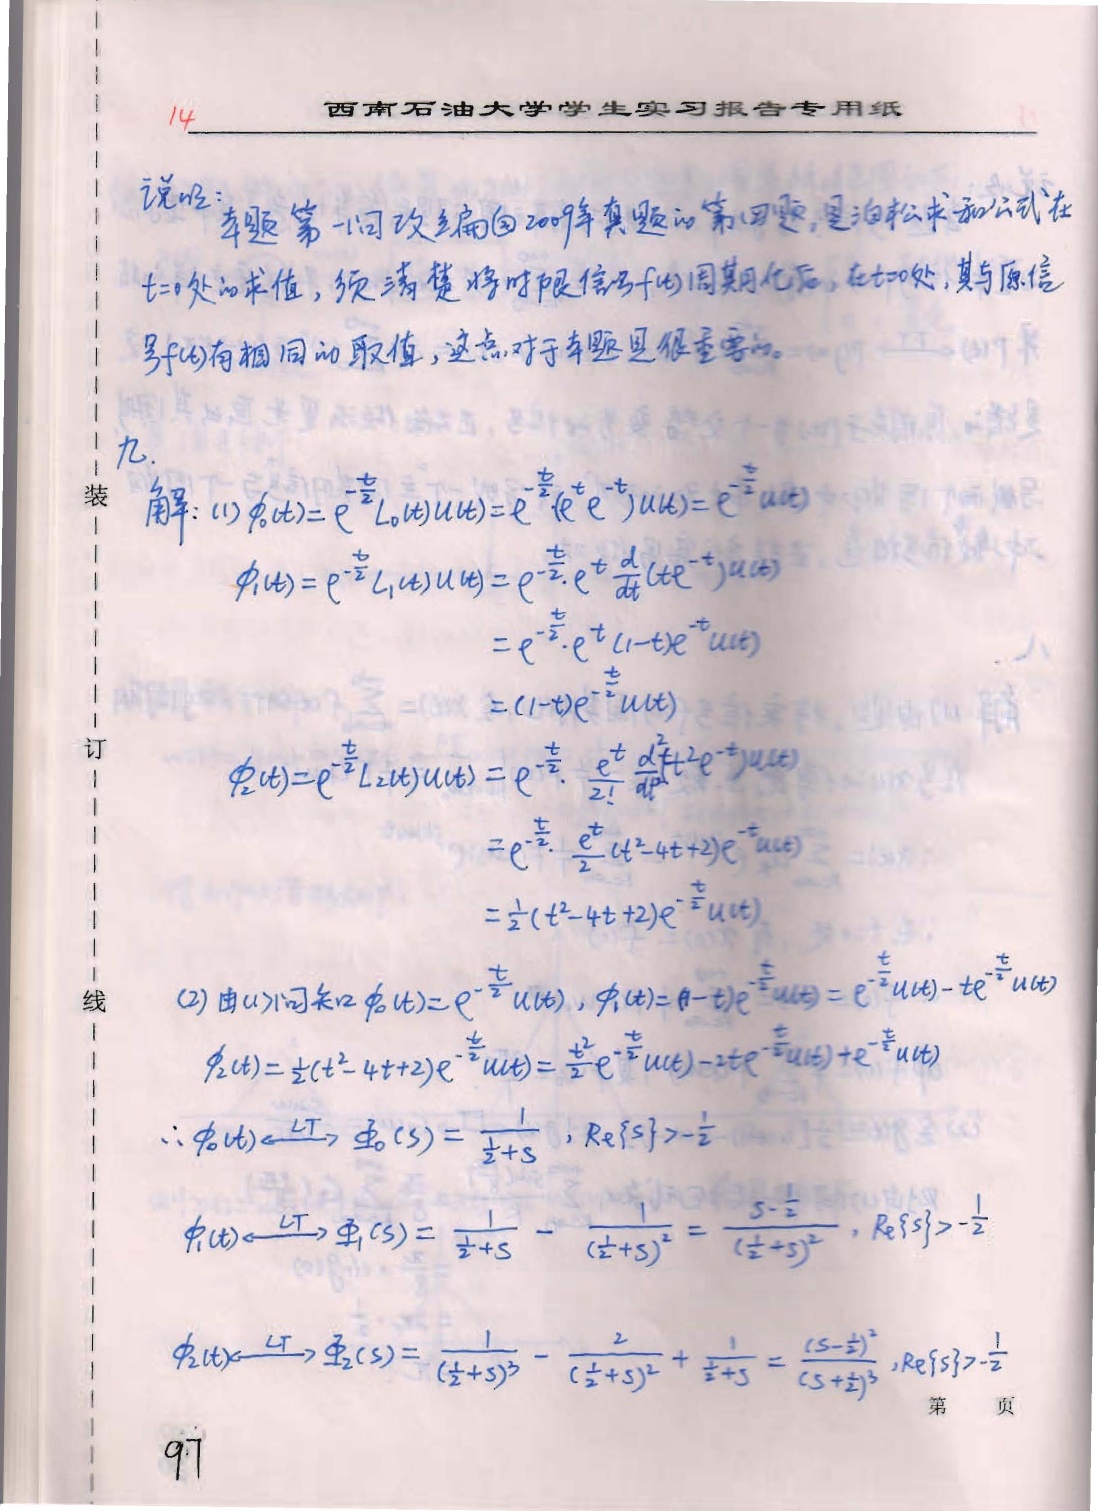 14
西南石油大学学生实习报告专用纸
说明:
本题第一问改编自2009年真题的第四题,是泊松求和公式在
t=0处的求值,须清楚将时限信号f(t)周期化后,在t=0处,其与原信
号f(t)有相同的取值,这点对于本题是很重要的。
九.
解:(1) φ₀(t)=e^{-t/2}L₀(t)u(t)=e^{-t/2}·(e^t e^{-t})u(t)=e^{-t/2}u(t)
φ₁(t)=e^{-t/2}L₁(t)u(t)=e^{-t/2}·e^t d/dt(te^{-t})u(t)
=e^{-t/2}·e^t(1-t)e^{-t}u(t)
=(1-t)e^{-t/2}u(t)
φ₂(t)=e^{-t/2}L₂(t)u(t)=e^{-t/2}·e^t/2! d²/dt²(t²e^{-t})u(t)
=e^{-t/2}·e^t/2(t²-4t+2)e^{-t}u(t)
=1/2(t²-4t+2)e^{-t/2}u(t)
(2) 由(1)问知 φ₀(t)=e^{-t/2}u(t), φ₁(t)=(1-t)e^{-t/2}u(t)=e^{-t/2}u(t)-te^{-t/2}u(t)
φ₂(t)=1/2(t²-4t+2)e^{-t/2}u(t)=t²/2 e^{-t/2}u(t)-2te^{-t/2}u(t)+e^{-t/2}u(t)
∴φ₀(t) ←LT→ Φ₀(s)=1/(1/2+s), Re{s}>-1/2
φ₁(t) ←LT→ Φ₁(s)=1/(1/2+s) - 1/(1/2+s)² = (s-1/2)/(1/2+s)², Re{s}>-1/2
φ₂(t) ←LT→ Φ₂(s)=1/(1/2+s)³ - 2/(1/2+s)² + 1/(1/2+s) = (s-1/2)²/(s+1/2)³, Re{s}>-1/2
第 页
97
装
订
线